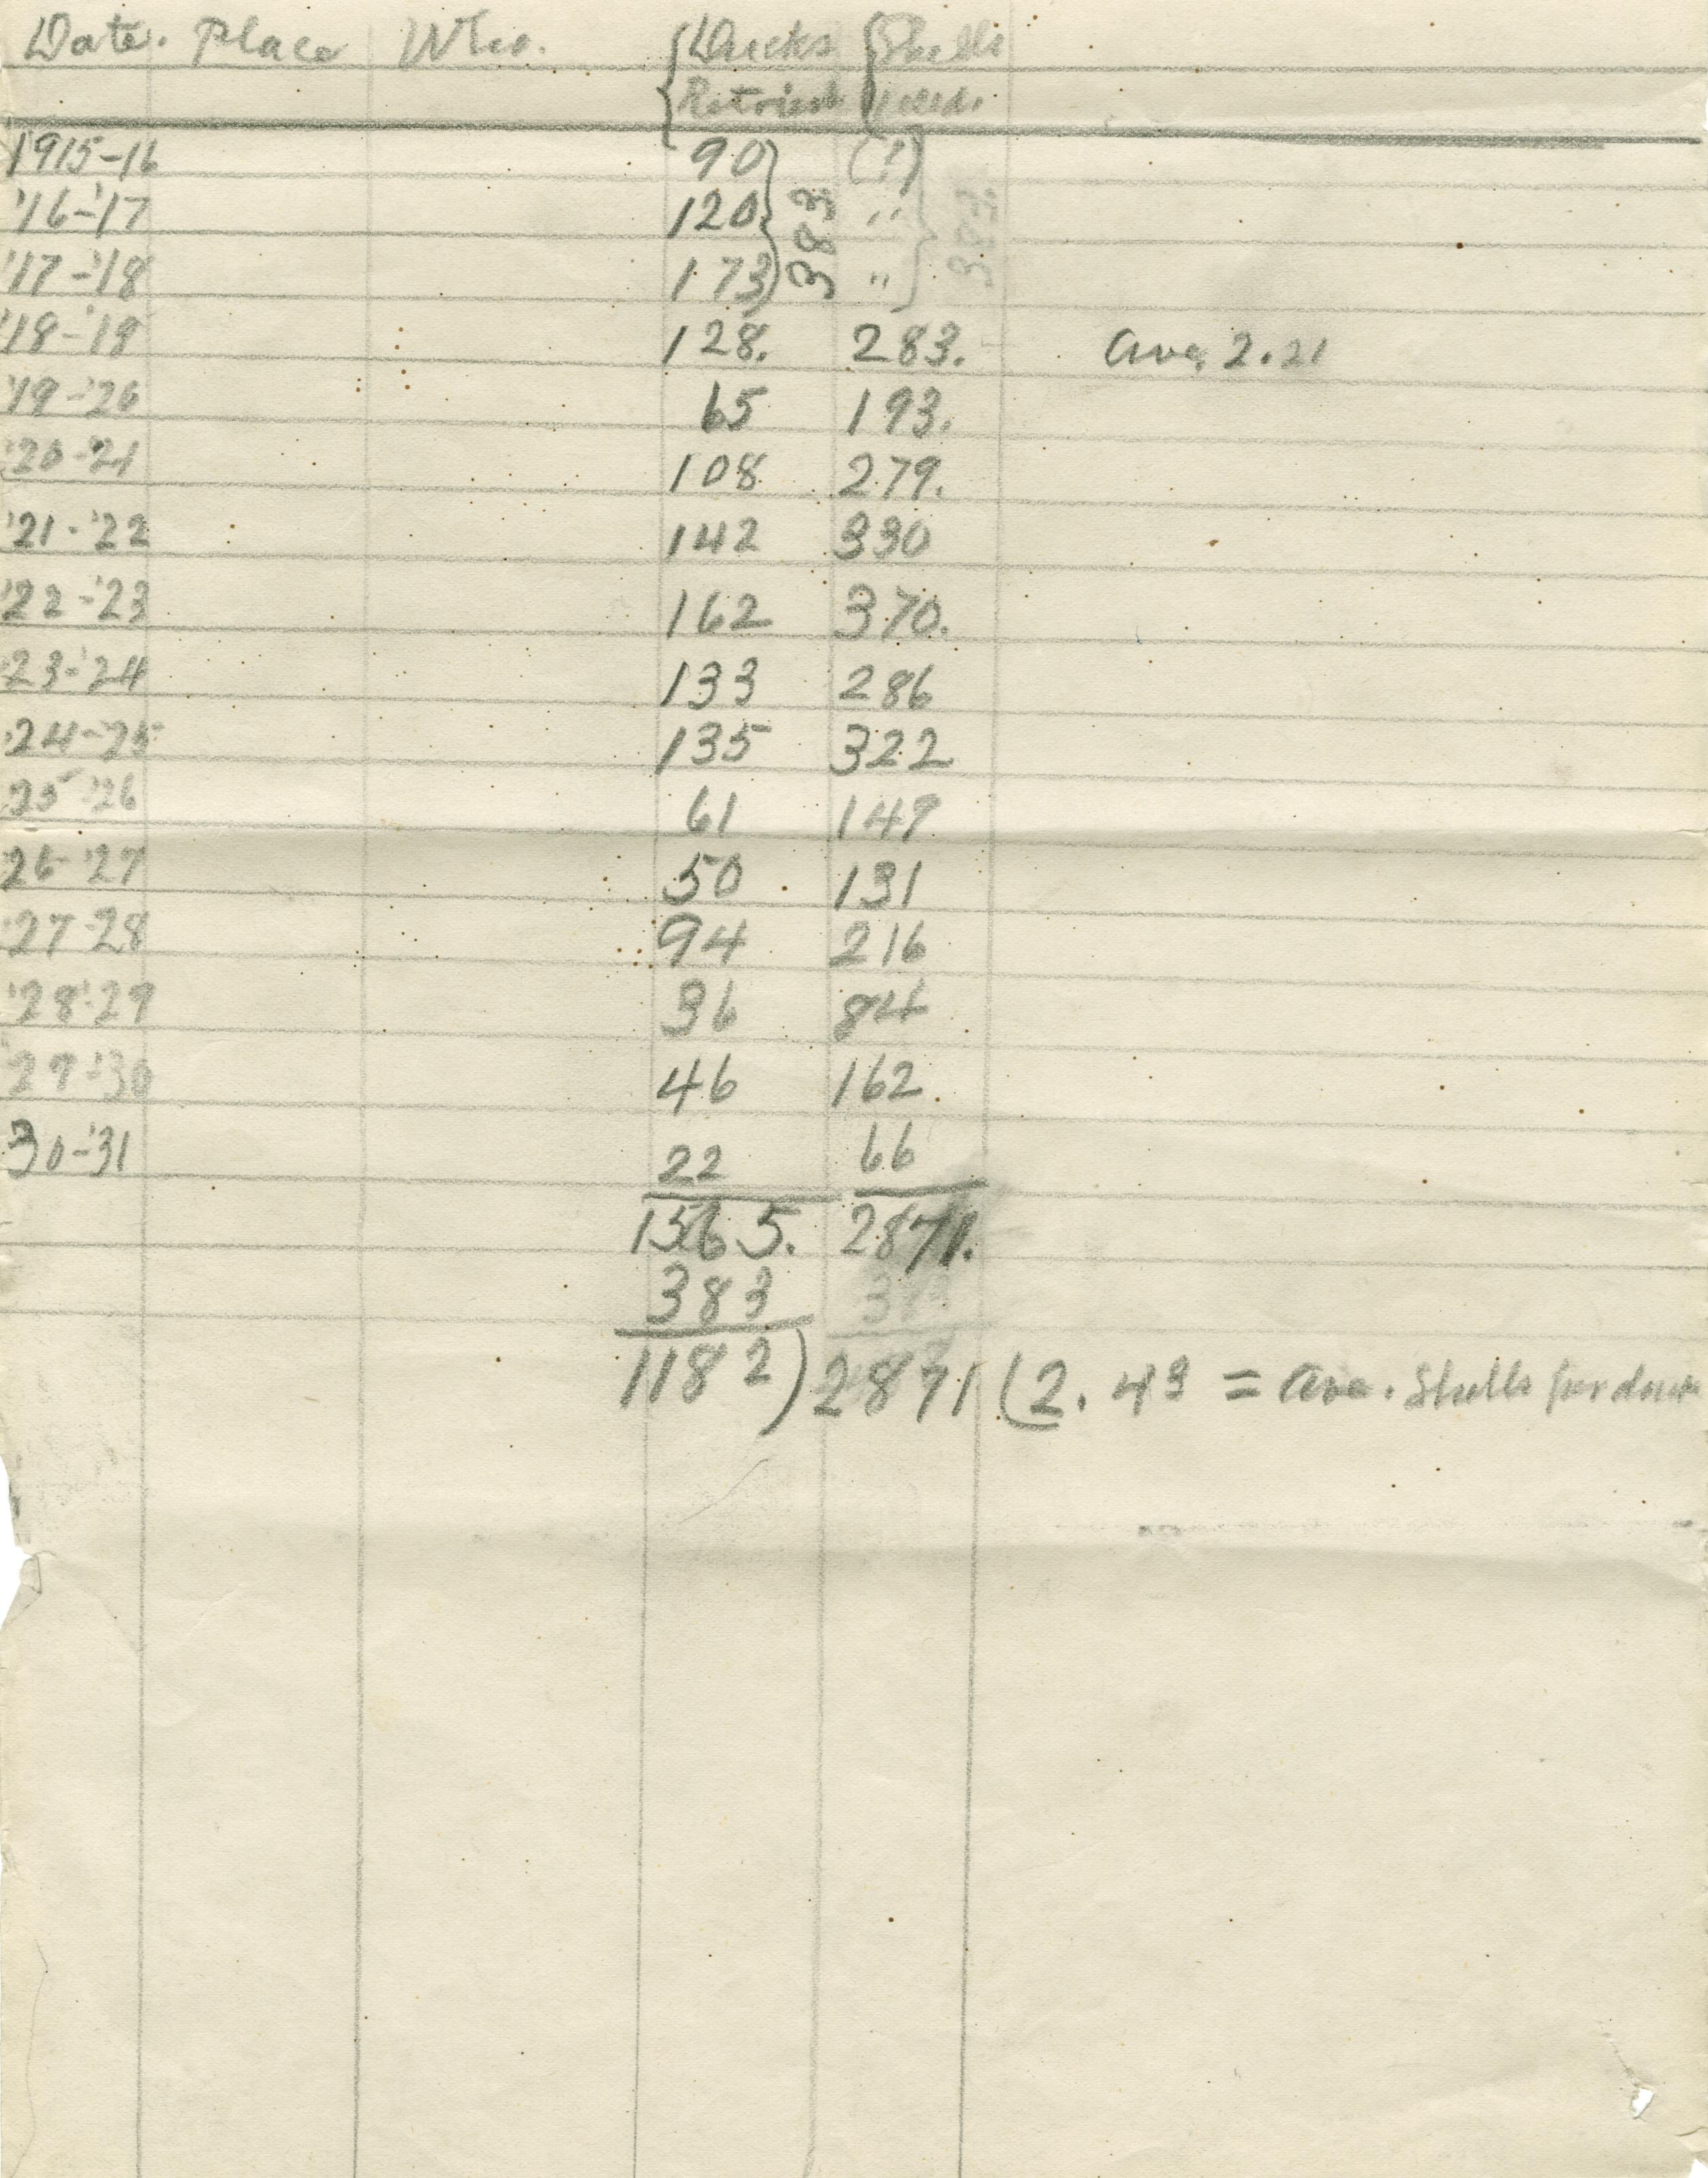 Date. Place Who. Ducks Shells
Retrievd used.
1915-16 90 (?)
'16-'17 120 383 "
'17-'18 173 "
'18-'19 128. 283. Ave. 2.21
'19-'20 65 193.
'20-'21 108 279.
'21-'22 142 330
'22-'23 162 370.
'23-'24 133 286
'24-'25 135 322
'25-'26 61 149
26-'27 50 131
'27-28 94 216
'28-'29 36 84
29-'30 46 162.
30-'31 22 66
1565. 2871.
383
1182)2871(2.43 = Ave. Shells per duck